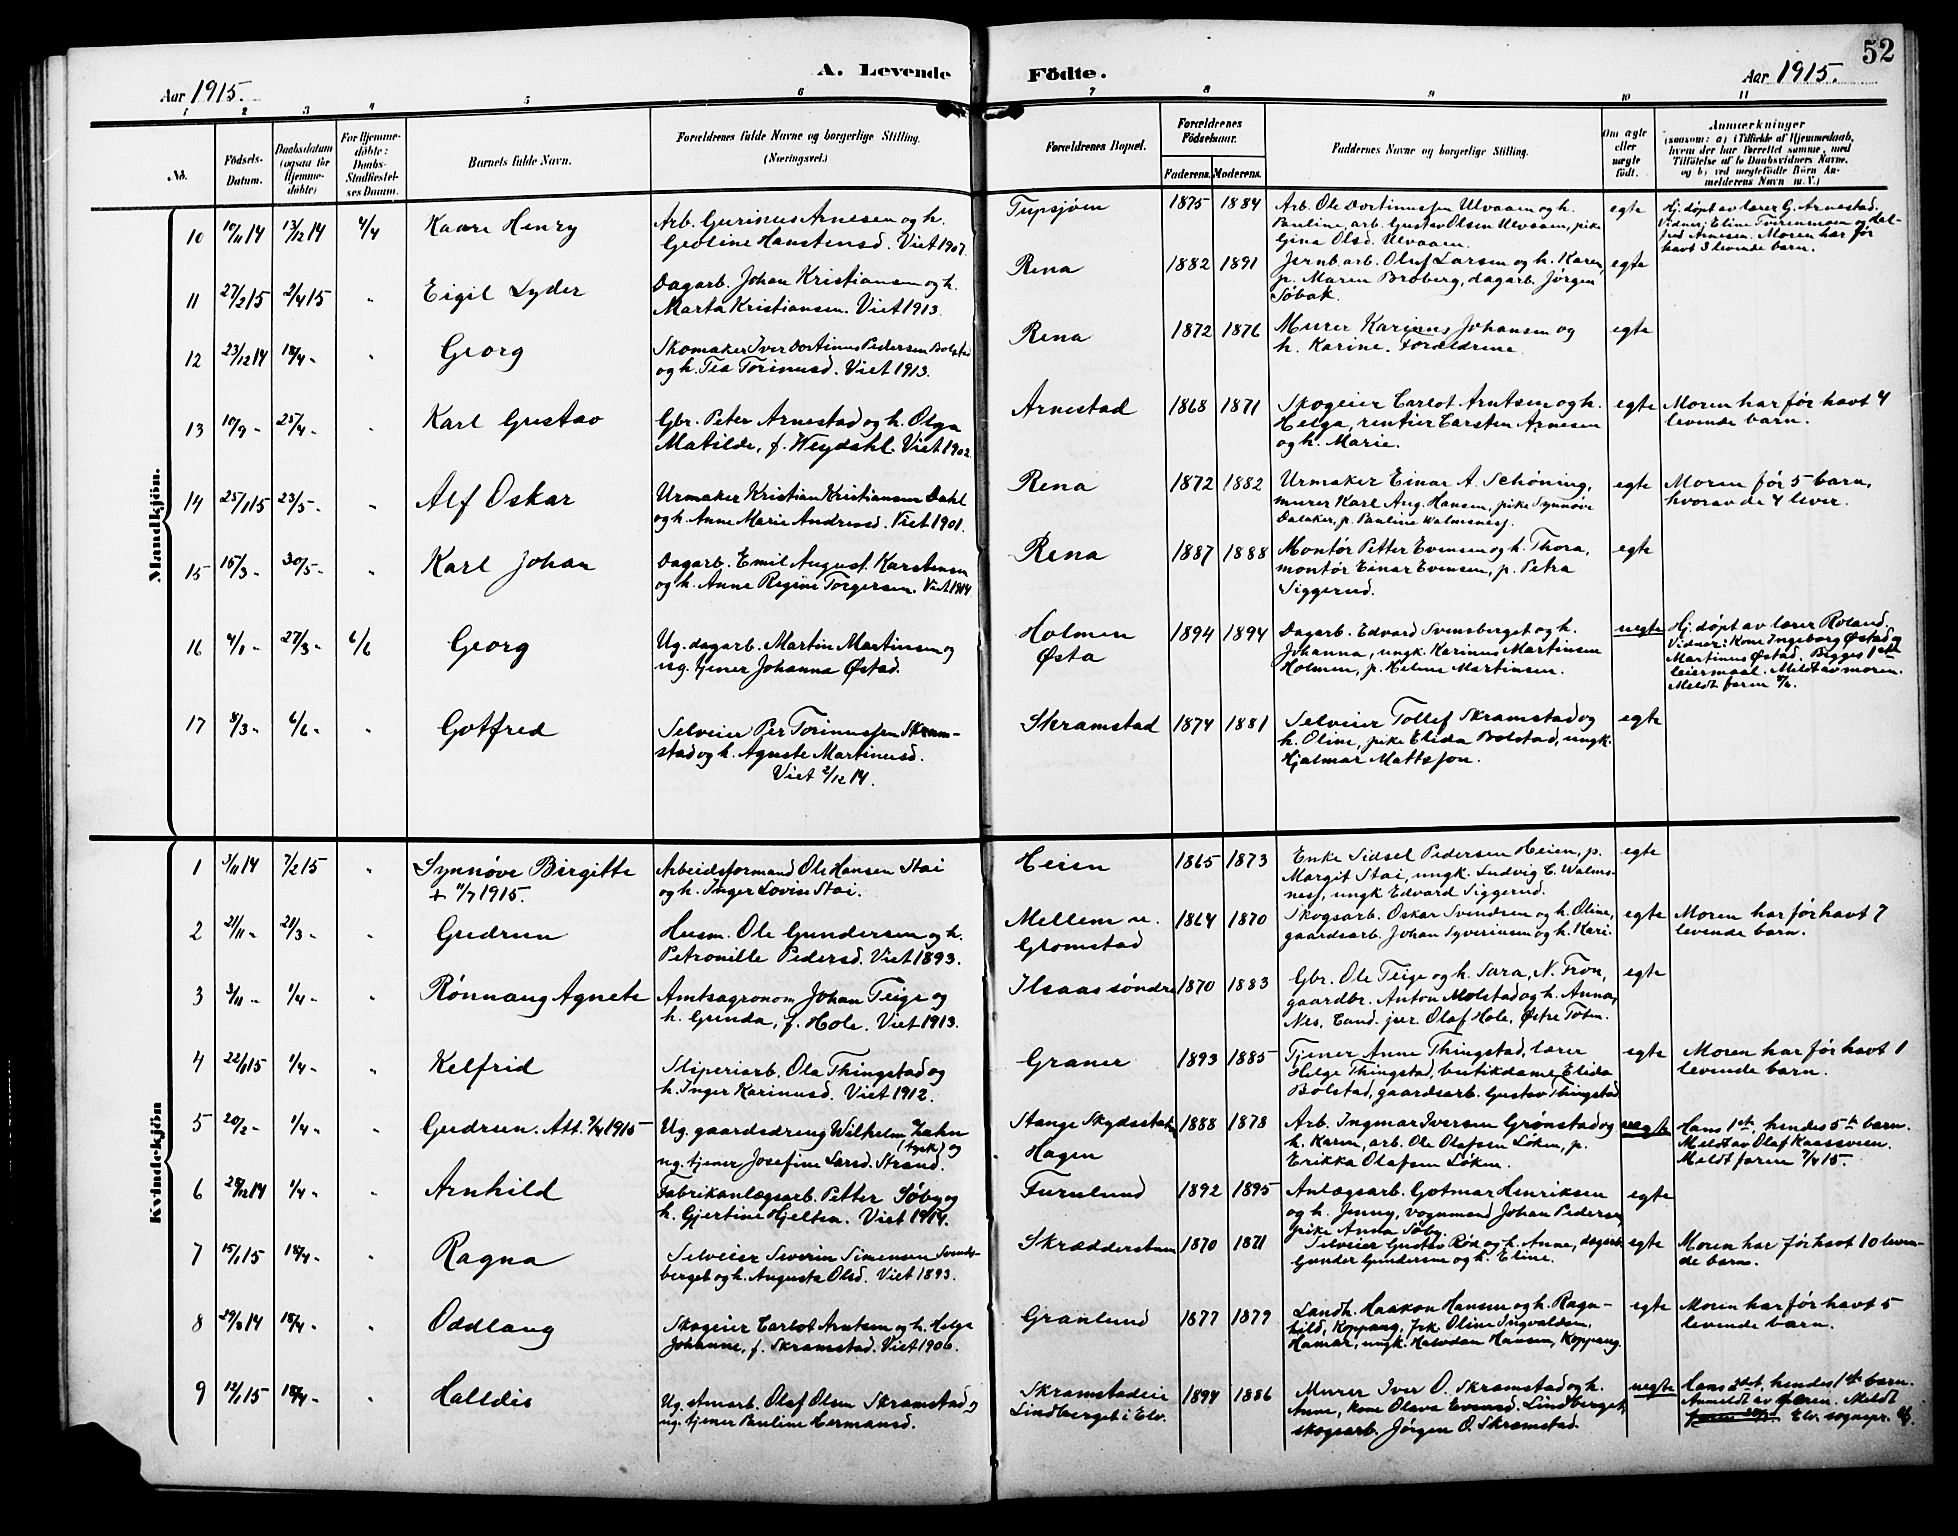 52
A. Levende Födte.
Aar 1915.
Aar 1915.
1 2 3 4 5 6 7 8 9 10 11
No.
Födsels-Datum.
Daabsdatum (ogsaa for Hjemmedöbte)
For Hjemmedöbte: Daabs-Stadfæstelses Datum.
Barnets fulde Navn.
Forældrenes fulde Navne og borgerlige Stilling. (Næringsvei.)
Forældrenes Bopæl.
Forældrenes Födselsaar.
Faderens. Moderens.
Faddernes Navne og borgerlige Stilling.
Om ægte eller uægte født.
Anmærkninger
(saasom: a) i Tilfælde af Hjemmedaab, hvem der har forrettet samme, med Tilföielse af to Daabsvidners Navne, og b) ved uegtefödte Börn Anmelderens Navn m. V.)
Mandkjön.
10 10/11 14 13/12 14 4/4 Kaare Henry
Arb. Gurinus Arnesen og h.
Geoline Hanstensd. Viet 1907.
Tupsjøen 1875 1884
Arb. Ole Dortinussen Ulvaaen og h.
Pauline, arb. Gustav Olsen Ulvaaen, pike
Gina Olsd. Ulvaaen.
egte
Hj. døpt av lærer G. Arnestad.
Vidner: Eline Turinmom og
Arnesen. Moren har før
havt 3 levende barn.
11 27/2 15 2/4 15 " Eigil Lyder
Dagarb. Johan Kristiansen og h.
Marta Kristiansen. Viet 1913.
Rena 1882 1891
Jernb.arb. Oluf Larsen og h. Karen,
p. Maren Broberg, dagarb. Jørgen
Søbak.
egte
12 23/12 14 18/4 " " Georg
Skomaker Iver Dortinus Pedersen Bolstad
og h. Tea Torinusd. Viet 1913.
Rena 1872 1876
Murer Karinus Johansen og
h. Karine. Forældrene.
egte
13 10/9 " 25/4 " " Karl Gustav
Gbr. Peter Arnestad og h. Olga
Matilde, f. Weydahl. Viet 1902.
Arnestad 1868 1871
Skogeier Carlot Arntsen og h.
Helga, rentier Carsten Arnesen
og h. Marie.
egte
Moren har før havt 4
levende barn.
14 25/1 15 23/5 " " Alf Oskar
Urmaker Kristian Kristiansen Dahl
og h. Anne Marie Andreasd. Viet 1901.
Rena 1872 1882
Urmaker Einar A. Schøning,
murer Karl Aug. Hansen, pike Synnøve
Dalaker, p. Pauline Walmsness.
egte
Moren før 5 barn,
hvorav de 4 lever.
15 15/3 " 30/5 " " Karl Johan
Dagarb. Emil August Karstensen
og h. Anne Regine Torgersen. Viet 1914
Rena 1887 1888
Montør Petter Evensen og h. Thora,
montør Einar Evensen, p. Petra
Siggerud.
egte
16 4/1 " 27/3 " 6/6 Georg
Ug. dagarb. Martin Martinsen og
ug. tjener Johanna Østad.
Holmen
Østa
1894 1894
Dagarb. Edvard Svensberget og h.
Johanna, ungk. Karinus Martinsen
Holmen, p. Helene Martinsen.
uegte
Hj. døpt av lærer Roland.
Vidner: Kone Ingeborg Østad og
Martinus Østad. Begges 1ste
leiermaal. Meldt av moren.
Meldt faren
17 8/3 " 6/6 " " Gotfred
Selveier Per Torinussen Skram-
stad og h. Agnete Martinusd.
Viet 2/12 14.
Skramstad 1874 1881
Selveier Tollef Skramstad og
h. Oline, pike Elida Bolstad, ungk.
Hjalmar Mattsson.
egte
Kvindekjön
1 3/11 14 7/2 15 " Synnøve Birgitte
+ 11/7 1915.
Arbeidsformand Ole Hansen Stai
og h. Inger Lovise Stai.
Heien 1865 1873
Enke Sidsel Pedersen Heien, p.
Margit Stai, ungk. Ludvig C. Walms-
ness, ungk. Edvard Siggerud.
egte
2 21/11 " 21/3 " " Gudrun
Husm. Ole Gundersen og h.
Petronille Pedersd. Viet 1893.
Mellem u.
Glomstad
1864 1870
Skogsarb. Oskar Svendsen og h. Oline,
gaardsarb. Johan Syverinsen og h. Kari.
egte
Moren har før havt 7
levende barn.
3 3/11 " 1/4 " " Rønnaug Agnete
Amtsagronom Johan Teige og
h. Gunda, f. Hole. Viet 1913.
Ilsaas søndre 1870 1883
Gbr. Ole Teige og h. Sara, N. Fron,
gaardbr. Anton Molstad og h. Anna,
Nes, Cand. jur. Olaf Hole, Østre Toten.
egte
4 22/1 15 1/4 " " Kelfrid
Sliperiarb. Ola Thingstad og
h. Inger Karinusd. Viet 1912.
Graner 1893 1885
Tjener Anne Thingstad, lærer
Helge Thingstad, butikdame Elida
Bolstad, gaardsarb. Gustav Thingstad
egte
Moren har før havt 1
levende barn.
5 20/2 " 1/4 " " Gudrun. Att. 9/4 1915
Ug. gaardsdreng Wilhelm Zahn
(tysk) og
ug. tjener Josefine Larsd. Strand.
Stange Skydsstation
Hagen
1888 1878
Arb. Ingmar Iversen Grønstad og
h. Karen, arb. Ole Olafsen Løken, p.
Erikka Olafsen Løken.
uegte
Hans 1ste, hendes 5te barn.
Meldt av Olaf Kaasveen.
Meldt faren 7/4 15.
6 28/12 14 1/4 " " Arnhild
Fabrikanlægsarb. Petter Søby og
h. Gjertine Hjelten. Viet 1914.
Furulund 1892 1895
Anlægsarb. Gotmar Henriksen
og h. Jenny, vognmand Johan Pedersen,
pike Anna Søby.
egte
7 15/1 15 18/4 " " Ragna
Selveier Severin Simensen Svends-
berget og h. Augusta Olsd. Viet 1893.
Skrædderstuen 1870 1871
Selveier Gustav Røe og h. Anne, dagarb.
Gunder Gundersen og h. Eline.
egte
Moren har før havt 10 leven-
de barn.
8 29/11 14 18/4 " " Oddlaug
Skogeier Carlot Arntsen og h. Helga
Johanne, f. Skramstad. Viet 1906.
Granlund 1877 1879
Landh. Haakon Hansen og h. Ragn-
hild, Koppang, frk. Oline Ingvaldsen,
Hamar, ungk. Halvdan Hansen, Koppang.
egte
Moren har før havt 5
levende barn.
9 12/1 15 18/4 " " Halldis
Ug. Olaf Olsen Skramstad og
ug. tjener Pauline Hermansd.
Skramstadeie
Lindberget i Elv.
1894 1886
Murer Iver O. Skramstad og h.
Anne, kone Olava Evensd. Lindberget,
skogsarb. Jørgen O. Skramstad.
uegte
Hans 2det, hendes 1ste barn.
Anmeldt av faren. Meldt
Elv. sognepr.